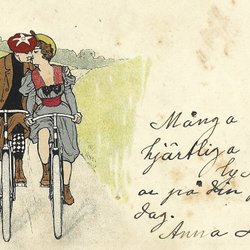 Många
hjärtliga
på din
dag.
Anna